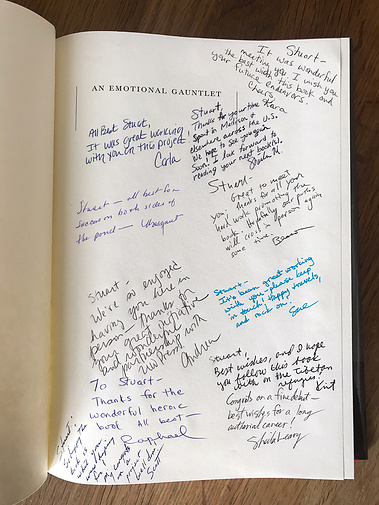 Stuart—
It was wonderful
meeting you. I wish you
the best with this book and
your future endeavors.
Cheers,
Kara
AN EMOTIONAL GAUNTLET
Stuart,
Thanks for your time
spent in Madison &
elsewhere across the U.S.
We hope to see you again
soon. I look forward to
reading your next book(s).
All Best Stuart,
It was great working
with you on this project.
Carla
Stuart
Great to meet
you, thanks for all your
hard work promoting the
book. Hopefully our paths
will cross in person again
some time.
Stuart — all best for
success on both sides of
the pond —
Stuart—
We've so enjoyed
having you here in
person — thanks for
your great initiative
and wonderful
partnership with
UW Press
Andrea
Stuart—
It's been great working
with you—please keep
in touch! Happy travels,
and rock on!
Sue
Stuart!
Best wishes, and I hope
you follow this book
with on the Tibetan
refugees.
To Stuart—
Thanks for the
wonderful heroic
book All best—
Raphael
Congrats on a fine debut—
best wishes for a long
authorial career!
Sheila Leary
Stuart:
Scott